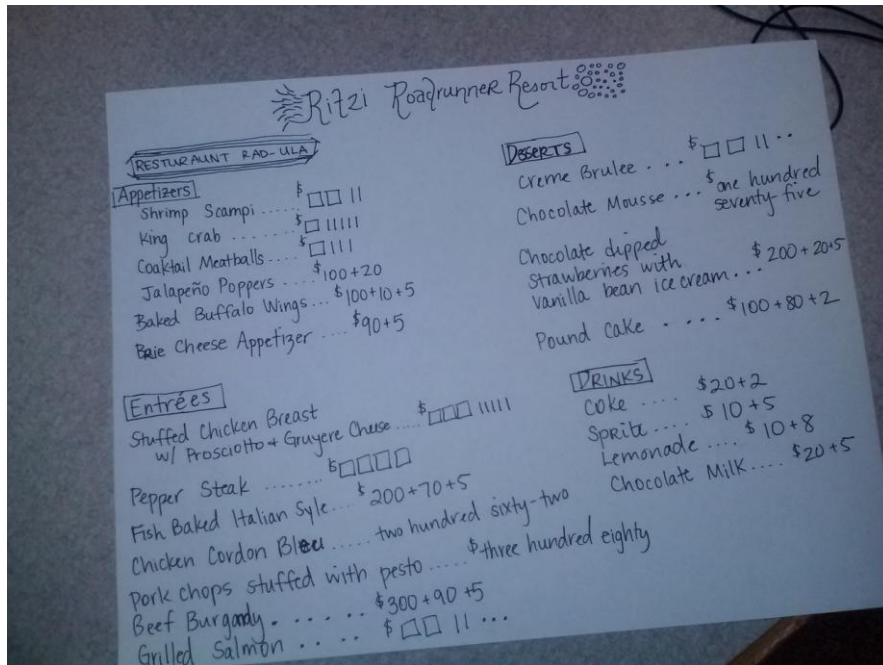 Ritzi Roadrunner Resort
RESTURAUNT RAD-ULA
Appetizers
Shrimp Scampi ..... $ □□ ||
King crab ....... $ □ |||||
Coaktail Meatballs .... $ □ |||
Jalapeño Poppers .... $100+20
Baked Buffalo Wings ... $100+10+5
Brie Cheese Appetizer .... $90+5
Entrées
Stuffed Chicken Breast
w/ Prosciotto + Gruyere Cheese .... $ □□□ |||||
Pepper Steak ........ $ □□□□
Fish Baked Italian Syle .... $200+70+5
Chicken Cordon Bleu ..... two hundred sixty-two
Pork Chops stuffed with pesto ..... $three hundred eighty
Beef Burgandy . . . . . . $300+90+5
Grilled Salmon . . . . $ □□ || ...
Desserts
Creme Brulee . . . $ □ □ || ..
Chocolate Mousse ... $one hundred
seventy-five
Chocolate dipped
strawberries with
vanilla bean ice cream ... $200+20+5
Pound Cake . . . . $100+80+2
DRINKS
Coke .... $20+2
Sprite .... $10+5
Lemonade .... $10+8
Chocolate Milk .... $20+5